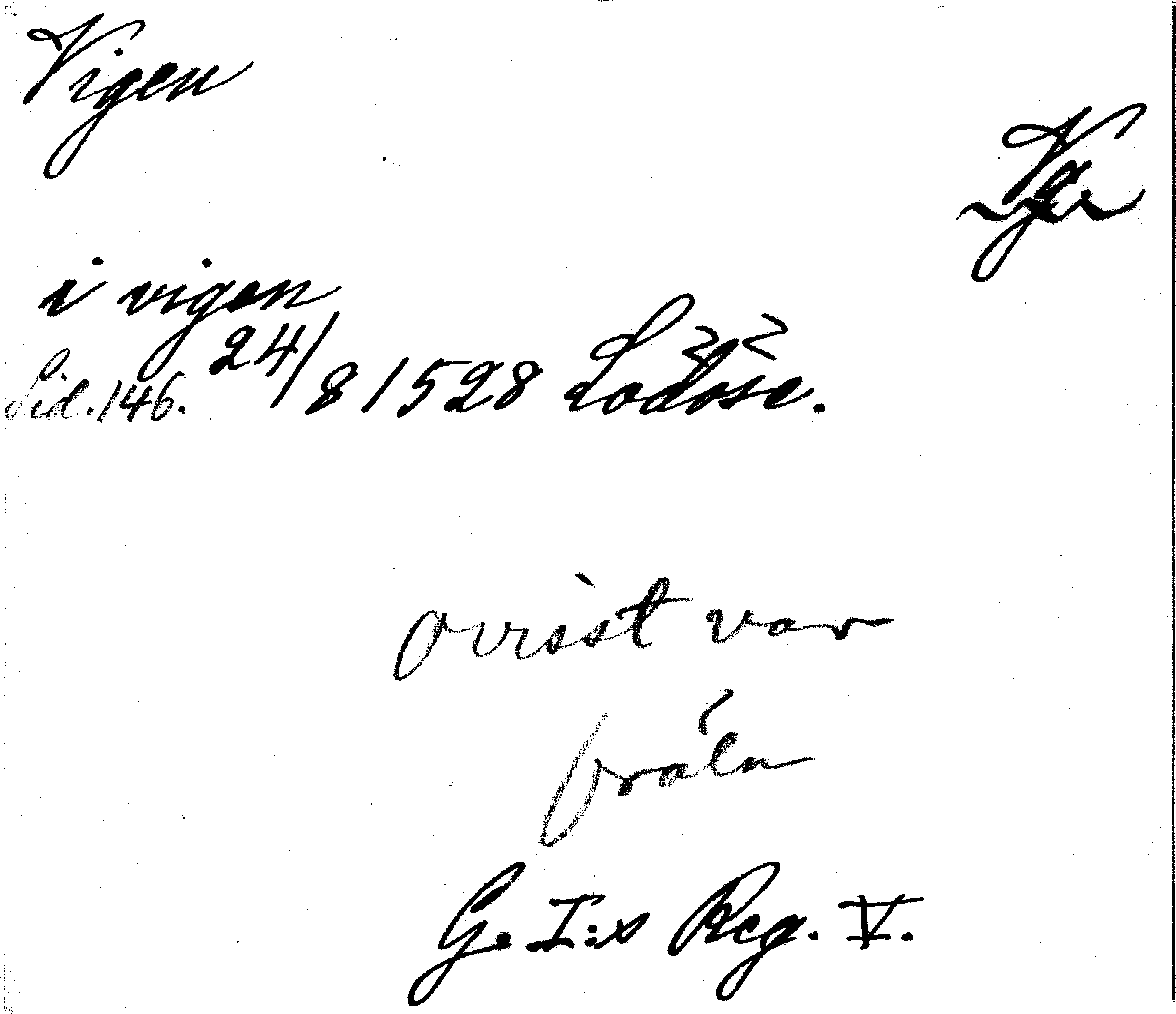 Vigen
Vg.
i vigen
Sid. 146. 24/8 1528 Lödöse.
ovisst var
G. I:s Reg. V.